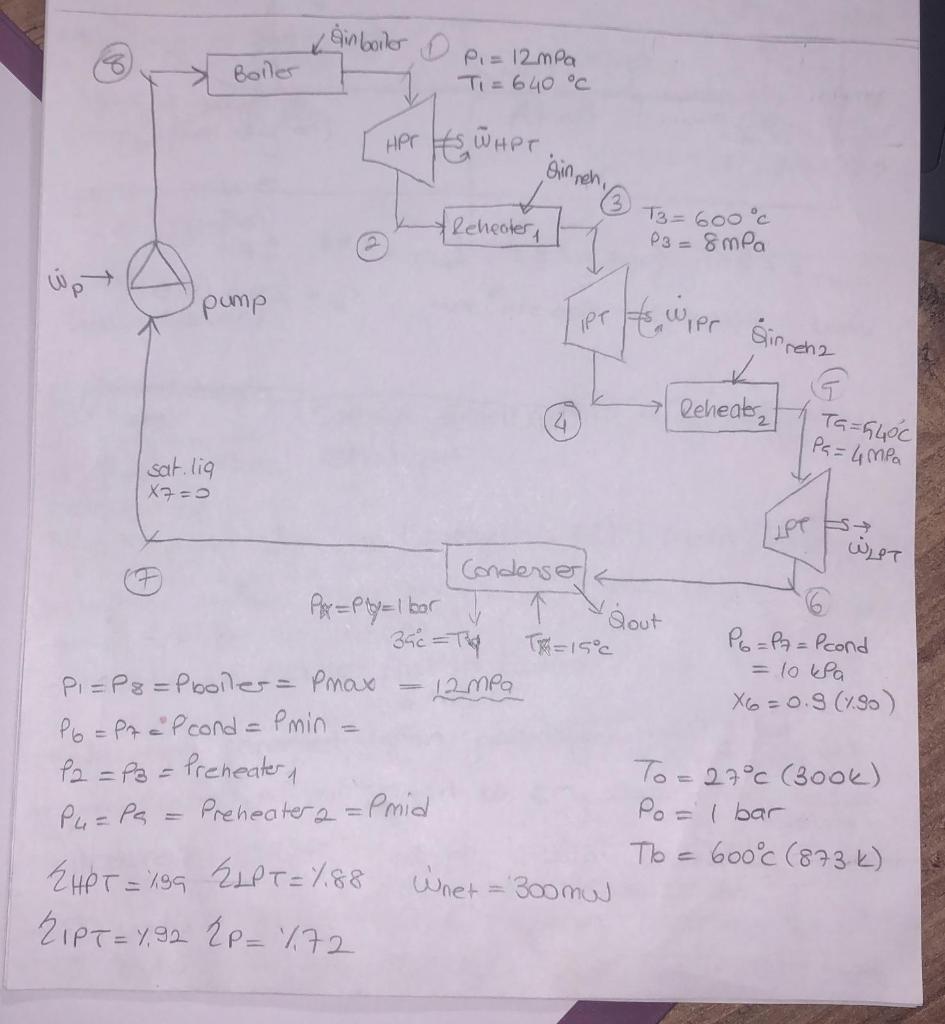 Q̇in boiler
①
P1 = 12 mPa
T1 = 640 °C
⑧
Boiler
HPT
ẇHPT
Q̇in reh1
②
Reheater1
③
T3 = 600 °C
P3 = 8 mPa
ẇp
pump
IPT
ẇIPT
Q̇in reh2
④
Reheater2
⑤
T5 = 540°C
P5 = 4 mPa
sat. liq
X7 = 0
LPT
ẇLPT
⑦
Condenser
⑥
= 1 bar
35°C =
= 15°C
Q̇out
P6 = P7 = Pcond
= 10 kPa
X6 = 0.9 (%90)
P1 = P8 = Pboiler = Pmax = 12 mPa
P6 = P7 = Pcond = Pmin =
P2 = P3 = Preheater1
P4 = P5 = Preheater2 = Pmid
T0 = 27°C (300K)
P0 = 1 bar
Tb = 600°C (873 K)
ηHPT = %95 ηLPT = %88 ẇnet = 300mW
ηIPT = %92 ηP = %72